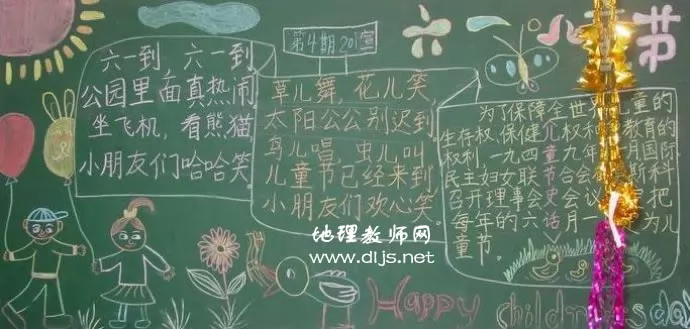 第4期201宣
六一儿童节
六一到，六一到
公园里面真热闹
坐飞机，看熊猫
小朋友们哈哈笑
草儿舞，花儿笑，
太阳公公别迟到
鸟儿唱，虫儿叫
儿童节已经来到
小朋友们欢心笑
为了保障全世 童的
生存权、保健 权和 教育的
权利，一九四 九年 月国际
民主妇女联 合会 斯科
召开理事会 会议 把
每年的六 月一 为儿
童节。
儿童节史话
地理教师网
www.dljs.net
Happy children's day